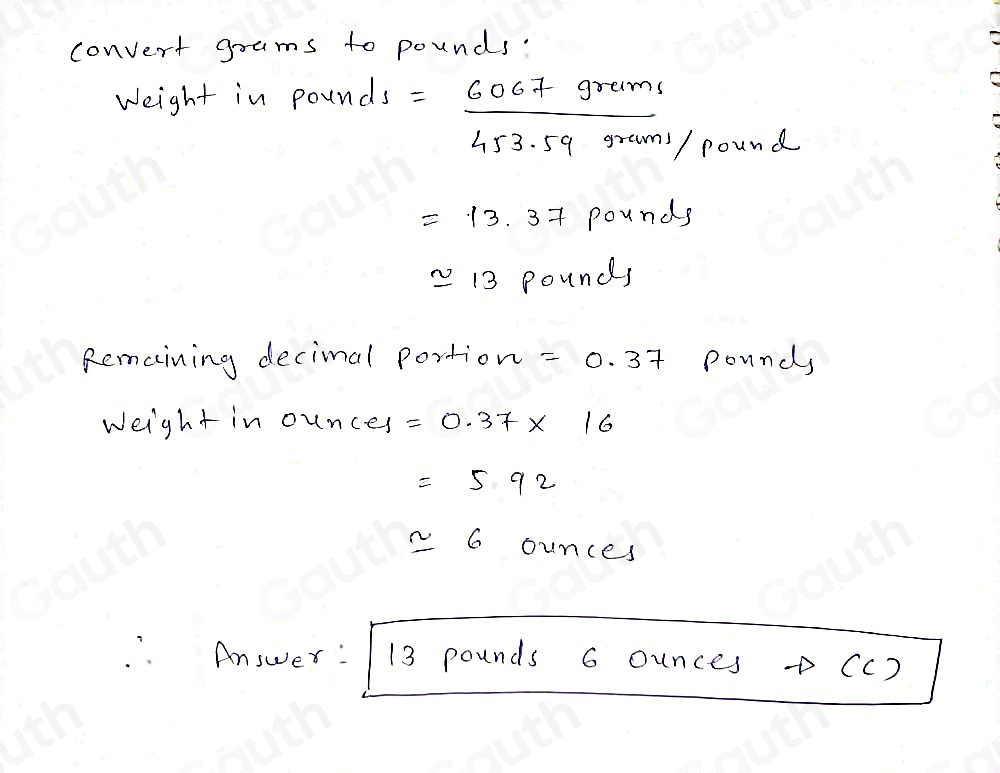 Convert grams to pounds:
Weight in pounds = 6067 grams
453.59 grams/pound
= 13.37 pounds
≃ 13 pounds
Remaining decimal portion = 0.37 pounds
Weight in ounces = 0.37 × 16
= 5.92
≃ 6 ounces
∴ Answer: 13 pounds 6 ounces → (C)